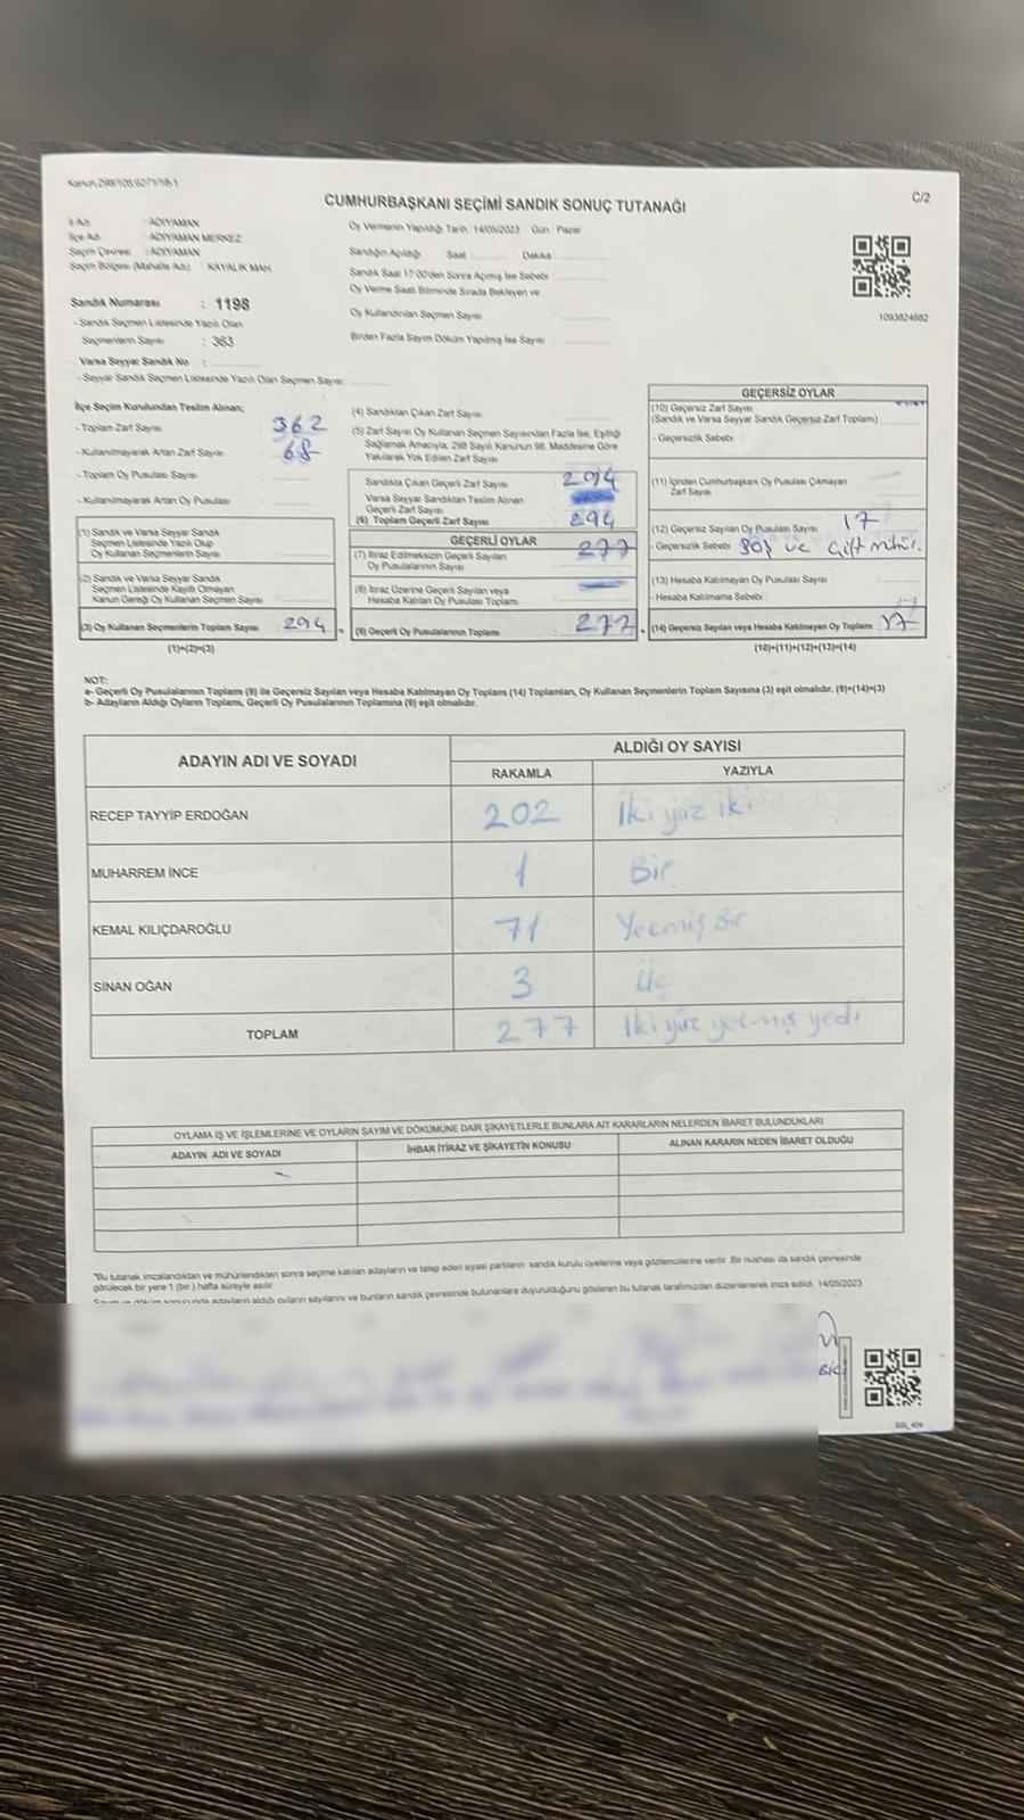 C/2
CUMHURBAŞKANI SEÇİMİ SANDIK SONUÇ TUTANAĞI
İl Adı : ADIYAMAN
İlçe Adı : ADIYAMAN MERKEZ
Seçim Çevresi : ADIYAMAN
Seçim Bölgesi (Mahalle Adı) : KAYALIK MAH.
Sandık Numarası : 1198
- Sandık Seçmen Listesinde Yazılı Olan
Seçmenlerin Sayısı : 363
Varsa Seyyar Sandık No :
- Seyyar Sandık Seçmen Listesinde Yazılı Olan Seçmen Sayısı:
Oy Vermenin Yapıldığı Tarih: 14/05/2023 Gün: Pazar
Sandığın Açıldığı Saat Dakika
Sandık Saat 17:00'den Sonra Açılmış İse Sebebi
Oy Verme Saati Bitiminde Sırada Bekleyen ve
Oy Kullandırılan Seçmen Sayısı
Birden Fazla Sayım Döküm Yapılmış İse Sayısı
1093824682
İlçe Seçim Kurulundan Teslim Alınan;
- Toplam Zarf Sayısı 362
- Kullanılmayarak Artan Zarf Sayısı 68
- Toplam Oy Pusulası Sayısı
- Kullanılmayarak Artan Oy Pusulası
(1) Sandık ve Varsa Seyyar Sandık
Seçmen Listesinde Yazılı Olup
Oy Kullanan Seçmenlerin Sayısı
(2) Sandık ve Varsa Seyyar Sandık
Seçmen Listesinde Kayıtlı Olmayan
Kanun Gereği Oy Kullanan Seçmen Sayısı
(3) Oy Kullanan Seçmenlerin Toplam Sayısı 294
(1)+(2)=(3)
(4) Sandıktan Çıkan Zarf Sayısı
(5) Zarf Sayısı Oy Kullanan Seçmen Sayısından Fazla İse, Eşitliği
Sağlamak Amacıyla, 298 Sayılı Kanunun 98. Maddesine Göre
Yakılarak Yok Edilen Zarf Sayısı
Sandıkta Çıkan Geçerli Zarf Sayısı 294
Varsa Seyyar Sandıktan Teslim Alınan
Geçerli Zarf Sayısı
(6) Toplam Geçerli Zarf Sayısı 294
GEÇERLİ OYLAR
(7) İtiraz Edilmeksizin Geçerli Sayılan
Oy Pusulalarının Sayısı 277
(8) İtiraz Üzerine Geçerli Sayılan veya
Hesaba Katılan Oy Pusulası Toplamı
(9) Geçerli Oy Pusulalarının Toplamı 277
GEÇERSİZ OYLAR
(10) Geçersiz Zarf Sayısı
(Sandık ve Varsa Seyyar Sandık Geçersiz Zarf Toplamı)
- Geçersizlik Sebebi
(11) İçinden Cumhurbaşkanı Oy Pusulası Çıkmayan
Zarf Sayısı
(12) Geçersiz Sayılan Oy Pusulası Sayısı 17
- Geçersizlik Sebebi Boş ve Çift mühür.
(13) Hesaba Katılmayan Oy Pusulası Sayısı
- Hesaba Katılmama Sebebi
(14) Geçersiz Sayılan veya Hesaba Katılmayan Oy Toplam 17
(10)+(11)+(12)+(13)=(14)
NOT:
a- Geçerli Oy Pusulalarının Toplamı (9) ile Geçersiz Sayılan veya Hesaba Katılmayan Oy Toplamı (14) Toplamları, Oy Kullanan Seçmenlerin Toplam Sayısına (3) eşit olmalıdır. (9)+(14)=(3)
b- Adayların Aldığı Oyların Toplamı, Geçerli Oy Pusulalarının Toplamına (9) eşit olmalıdır.
ADAYIN ADI VE SOYADI ALDIĞI OY SAYISI
RAKAMLA YAZIYLA
RECEP TAYYİP ERDOĞAN 202 İki yüz iki
MUHARREM İNCE 1 Bir
KEMAL KILIÇDAROĞLU 71 Yetmiş Bir
SİNAN OĞAN 3 Üç
TOPLAM 277 İki yüz yetmiş yedi
OYLAMA İŞ VE İŞLEMLERİNE VE OYLARIN SAYIM VE DÖKÜMÜNE DAİR ŞİKAYETLERLE BUNLARA AİT KARARLARIN NELERDEN İBARET BULUNDUKLARI
ADAYIN ADI VE SOYADI İHBAR İTİRAZ VE ŞİKAYETİN KONUSU ALINAN KARARIN NEDEN İBARET OLDUĞU
*Bu tutanak imzalandıktan ve mühürlendikten sonra seçime katılan adayların ve talep eden siyasi partilerin sandık kurulu üyelerine veya gözlemcilerine verilir. Bir nüshası da sandık çevresinde
görülecek bir yere 1 (bir) hafta süreyle asılır.
adayların aldığı oyların sayılarını ve bunların sandık çevresinde bulunanlara duyurulduğunu gösteren bu tutanak tarafımızdan düzenlenerek imza edildi. 14/05/2023